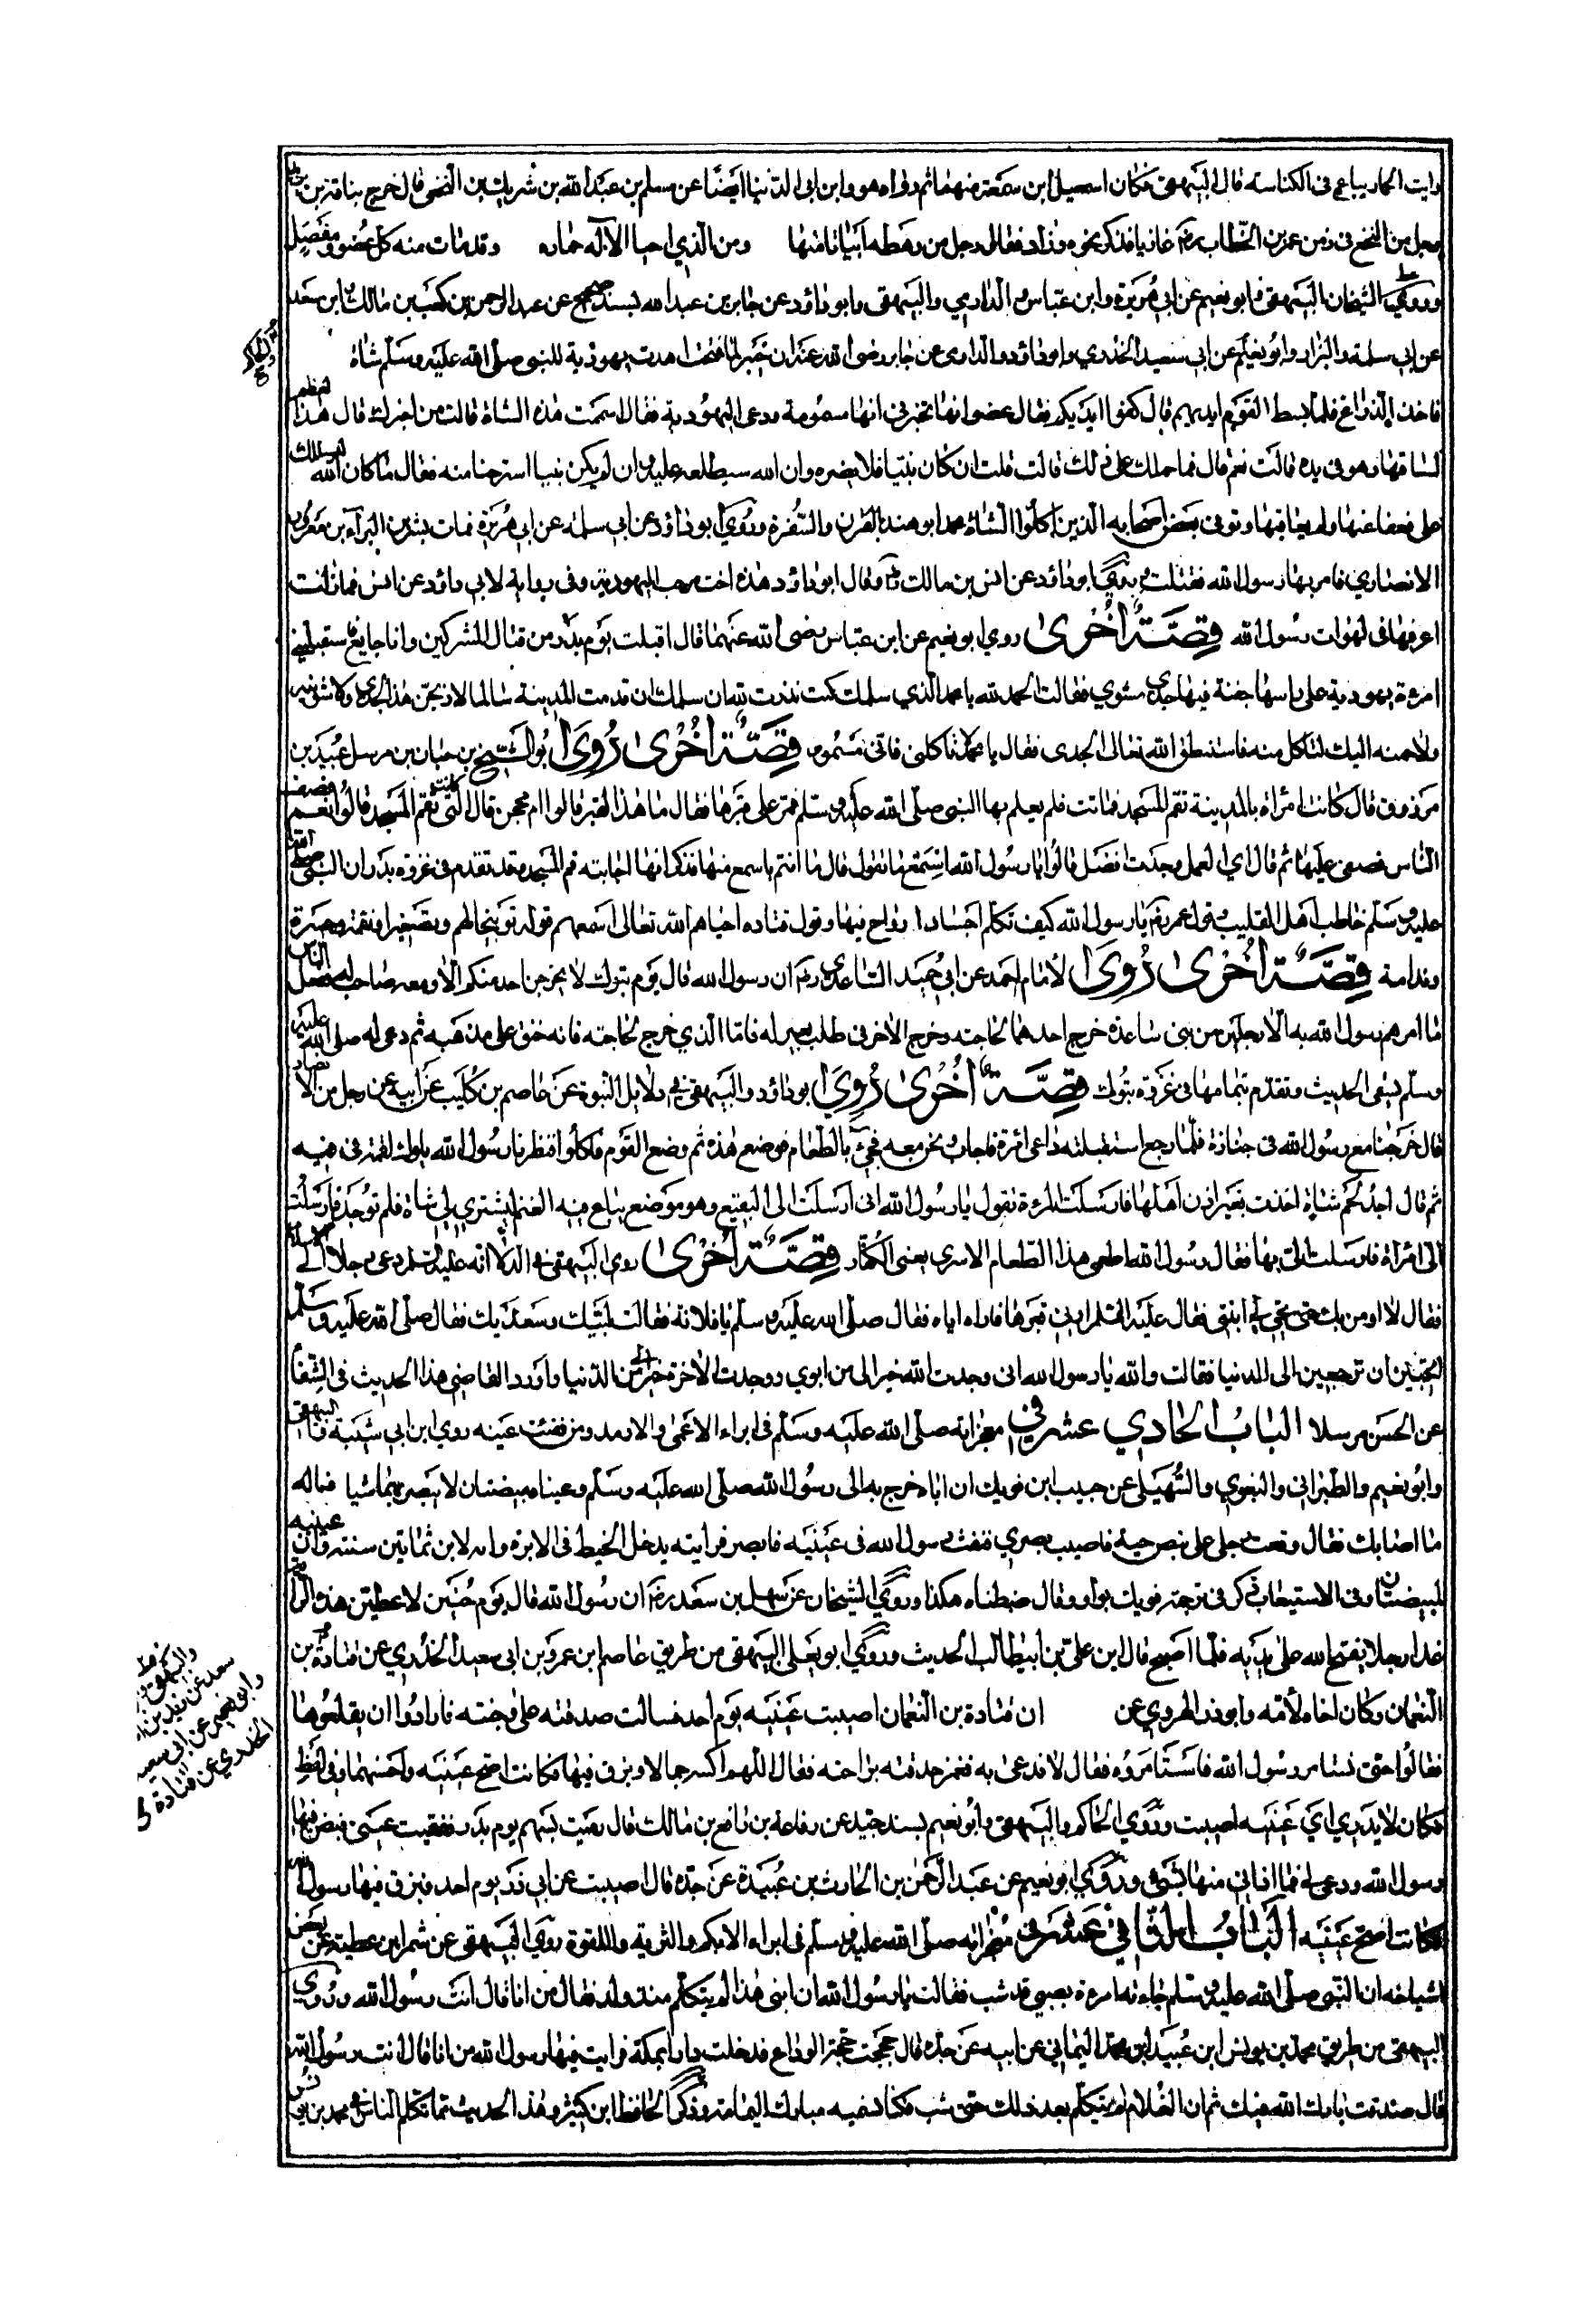 رايت الحمار يباع في الكناسه قال البيهقى فكان اسمعيل ابن سمعته منهما ثم رواه هو وابن ابى الدنيا ايضا عن مسلم بن عبد الله بن شريك بن النخعى قال خرج بناقة بن
رجل من النخع فى زمن عمر بن الخطاب رضه غازيا فذكر نحوه وزاد فقال رجل من رهطه ابياتا منها ومن الذي احيا الاله حماره وقد مات منه كل عضو ومفصل
وروي الشيخان البيهقى وابو نعيم عن ابى هريرة وابن عباس والدارمي والبيهقى وابو داؤد عن جابر بن عبد الله بسند صحيح عن عبد الرحمن بن كعب بن مالك وابن سعد
عن ابى سلمة والبزار وابو نعيم عن ابى سعيد الخدري وابو داؤد والدارمى عن جابر رضى الله عنه ان خيبر لما فتحت اهدت يهودية للنبى صلى الله عليه وسلم شاة
فاخذ الذراع فلما بسط القوم ايديهم قال كفوا ايديكم فقال عضوا نها تخبرنى انها مسمومة ودعى اليهودية فقال اسممت هذه الشاة قالت من اخبرك قال هذا لعظم
لساقها وهو فى يده قالت نعم قال فما حملك على ذلك قالت قلت ان كان نبيا فلا يضره وان الله سيطلعه عليه وان لم يكن نبيا استرحنا منه فقال ما كان الله ليسلطك
على فعفا عنها ولم يعاقبها وتوفى بعض اصحابه الذين اكلوا الشاة حجمه ابو هند بالقرن والشفرة وروي ابو داؤد عن ابى سلمه عن ابى هريرة فمات بشر بن البراء بن معرور
الانصاري فامر بها رسول الله فقتلت وروي ابو داؤد عن انس بن مالك وقال ابو داؤد هذه اخت مرحب اليهودية وفى رواية لابى داؤد عن انس فما زلت
اعرفها فى لهوات رسول الله قصة اخرى روي ابو نعيم عن ابن عباس رضى الله عنهما قال اقبلت يوم بدر من قتال المشركين وانا جايع فاستقبلتنى
امرءة يهودية على راسها جفنة فيها جدى مشوي فقالت الحمد لله يا محمد الذي سلمك كنت نذرت لله ان سلمك ان قدمت المدينة سالما لاذبحن هذا الجدي ولاشوينه
ولاحمنه اليك لتاكل منه فاستنطق الله تعالى الجدى فقال يا محمد لا تاكلنى فانى مسموم قصة اخرى روى ابو الشيخ بن حبان بن مرسل عبيد بن
مرزوق قال كانت امراة بالمدينة تقم المسجد فماتت فلم يعلم بها النبى صلى الله عليه وسلم فمر على قبرها فقال ما هذا القبر قالوا ام محجن قال التى كانت تقم المسجد قالوا نعم فصف
الناس فصلى عليها ثم قال اي العمل وجدت افضل قالوا يا رسول الله اتسمع ما تقول قال ما انتم باسمع منها فذكر انها اجابته قم المسجد وقد تقدم فى غزوه بدر ان النبى صلى
عليه وسلم خاطب اهل القليب وقول عمر رضه يا رسول الله كيف تكلم اجسادا لا ارواح فيها وقول قتاده احياهم الله تعالى اسمعهم قوله توبيخا لهم وتصغيرا ونقمة وحسرة
وندامة قصة اخرى روى الامام احمد عن ابى حميد الساعدى رضه ان رسول الله قال يوم تبوك لا يخرجن احد منكم الا ومعه صاحب له ففعل الناس
ما امرهم رسول الله به الا رجلين من بنى ساعدة خرج احدهما لحاجته وخرج الاخر فى طلب بعير له فاما الذي خرج لحاجته فانه خنق على مذهبه ثم دعى له صلى الله عليه
وسلم فشفى الحديث وتقدم بتمامها فى غزوة تبوك قصة اخرى روى ابو داؤد والبيهقى فى دلايل النبوة عن عاصم بن كليب عن ابيه عن رجل من الانصار
قال خرجنا مع رسول الله فى جنازة فلما رجع استقبلته داعى امرة فاجاب ونحن معه فجئ بالطعام فوضع هذه ثم وضع القوم فاكلوا فنظر نا رسول الله يلوك لقمة فى فيه
ثم قال اجد لحم شاة اخذت بغير اذن اهلها فارسلت المرءة تقول يا رسول الله انى ارسلت الى البقيع وهو موضع يباع فيه الغنم ليشتري لى شاة فلم توجد فارسلت
الى امراة فارسلت الى بها فقال رسول الله اطعمى هذا الطعام الاسرى يعنى الكفار قصة اخرى روى البيهقى فى الدلائل انه عليه السلم دعى رجلا الى الاسلام
فقال لا اومن بك حتى تحيى لى ابنتى فقال عليه السلم ارنى قبرها فاراه اياه فقال صلى الله عليه وسلم يا فلانة فقالت لبيك وسعديك فقال صلى الله عليه وسلم
اتحبين ان ترجعين الى الدنيا فقالت والله يا رسول الله انى وجدت الله خيرا لى من ابوي ووجدت الاخرة خيرا لى من الدنيا واورد القاضى هذا الحديث فى الشفا
عن الحسن مرسلا الباب الحادي عشر في معجزاته صلى الله عليه وسلم فى ابراء الاعمى والارمد ومن فقئت عينه روي ابن ابى شيبة والبيهقى
وابو نعيم والطبرانى والبغوي والسهيلى عن حبيب ابن فويك ان اباه خرج به الى رسول الله صلى الله عليه وسلم وعيناه مبيضتان لا يبصر بهما شيا فساله
ما اصابك فقال وقعت رجلى على بيض حية فاصيب بصري فنفث رسول الله فى عينيه فابصر فرايته يدخل الخيط فى الابرة وانه لابن ثمانين سنة وان عينيه
لمبيضتان وفى الاستيعاب ذكر فى ترجمة فويك بواو وقال ضبطناه هكذا وروي الشيخان عن سهل بن سعد رضه ان رسول الله قال يوم حنين لاعطين هذه الراية
غدا رجلا يفتح الله على يديه فلما اصبح قال اين على بن ابيطالب الحديث وروي ابو يعلى البيهقى من طريق عاصم ابن عمرو بن ابى سعيد الخدري عن قتادة بن
النعمان وكان اخاه لامه وابو ذر الهروي عن ان قتادة بن النعمان اصيبت عينيه يوم احد فسالت حدقته على وجنته فارادوا ان يقلعوها
فقالوا حتى نستامر رسول الله فاستامروه فقال لا فدعى به فغمز حدقته براحته فقال اللهم اكسه جمالا وبزق فيها فكانت اصح عينيه واحسنهما وفى لفظ
فكان لا يدري اي عينيه اصيبت وروي الحاكم والبيهقى وابو نعيم بسند جيد عن رفاعة بن رافع بن مالك قال رميت بسهم يوم بدر ففقيت عينى فبصق فيها
رسول الله ودعى لى فما اذانى منها شئ وروي ابو نعيم عن عبد الرحمن بن الحارث بن عبيدة عن جده قال اصيبت عن ابى ذر يوم احد فبزق فيها رسول الله
فكانت اصح عينيه الباب الثانى عشر فى معجزاته صلى الله عليه وسلم فى ابراء الابكم والثرية واللقوة روي البيهقى عن شمر ابن عطية عن بعض
اشياخه ان النبى صلى الله عليه وسلم جاءته امرءة بصبى قد شب فقالت يا رسول الله ان ابنى هذا لم يتكلم منذ ولد فقال من انا قال انت رسول الله وروي
البيهقى من طريق محمد بن يونس ابن عبيد ابن محمد اليمانى عن ابيه عن جده قال حججت حجة الوداع فدخلت دارا بمكة فرايت فيها رسول الله من انا قال انت رسول الله
قال صدقت بارك الله فيك ثم ان الغلام لم يتكلم بعد ذلك حتى شب فكنا نسميه مبارك اليمامة وذكر الحافظ ابن كثير وهذا الحديث مما تكلم الناس فى محمد بن يونس
والبيهقى
سعد عن زيد بن
وابو نعيم عن ابى سعيد
الخدري عن قتادة